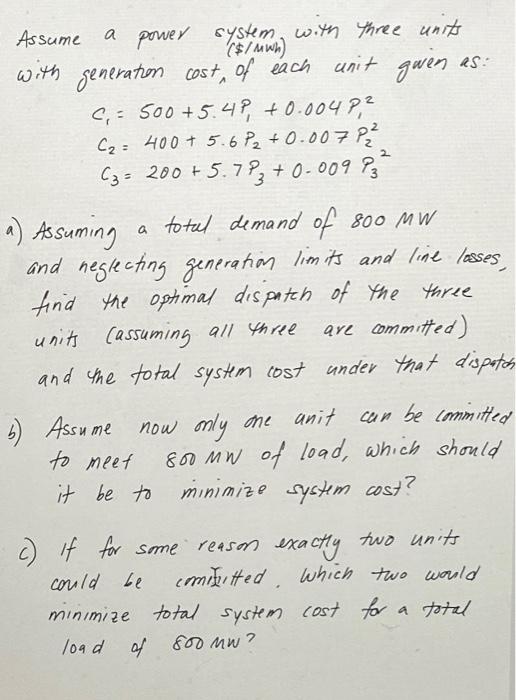 Assume a power system, with three units
($/MWh)
with generation cost ^ of each unit given as:
C₁ = 500 + 5.4P₁ + 0.004 P₁²
C₂ = 400 + 5.6 P₂ + 0.007 P₂²
C₃ = 200 + 5.7 P₃ + 0.009 P₃²
a) Assuming a total demand of 800 MW
and neglecting generation limits and line losses,
find the optimal dispatch of the three
units (assuming all three are committed)
and the total system cost under that dispatch
b) Assume now only one unit can be committed
to meet 800 MW of load, which should
it be to minimize system cost?
c) If for some reason exactly two units
could be committed. Which two would
minimize total system cost for a total
load of 800 MW?